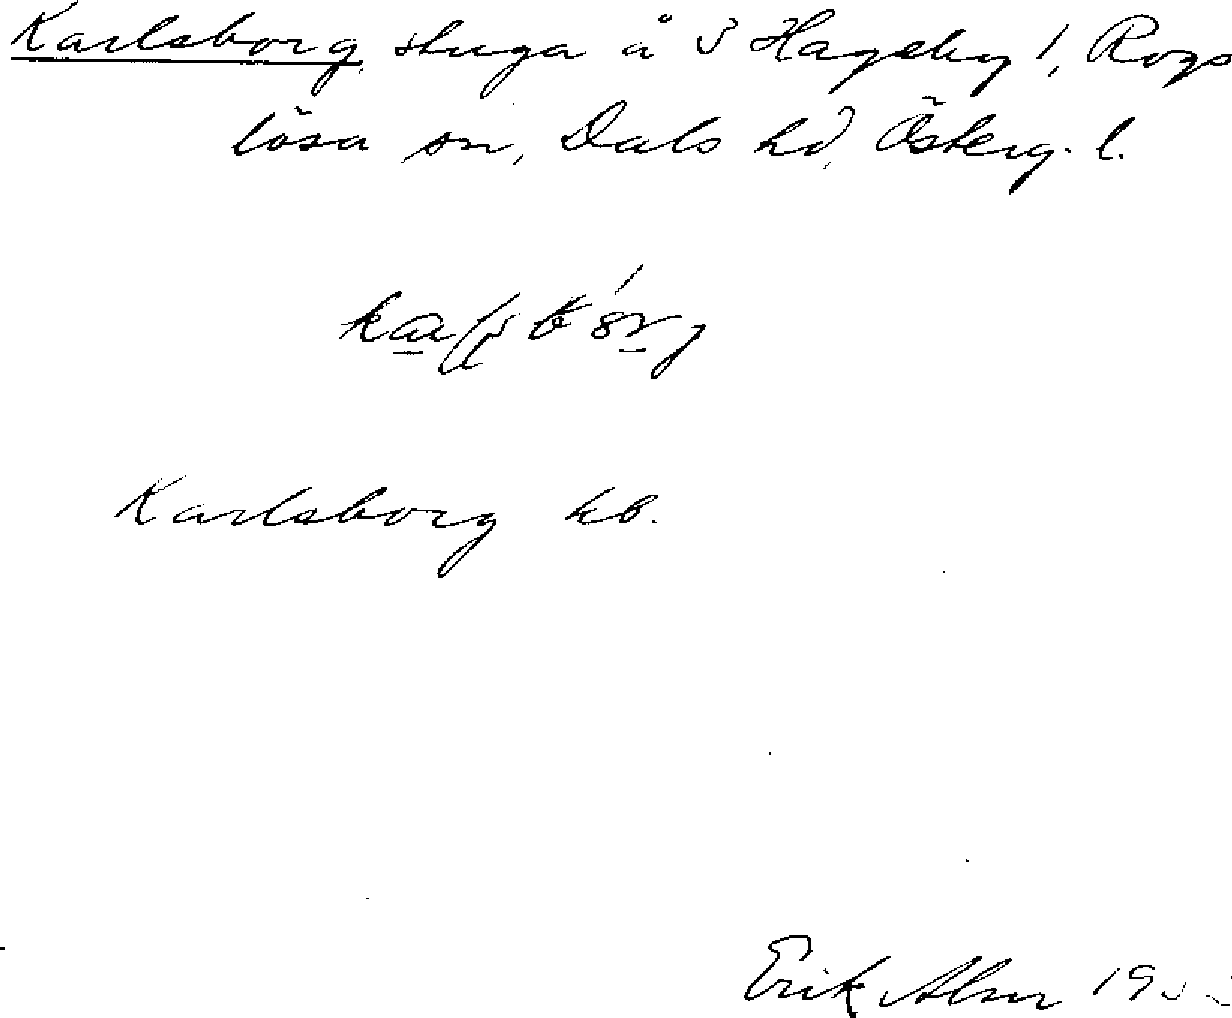 Karlsborg, stuga å S Hageby 1, Rogs
lösa sn, Dals hd, Österg. l.
Karlsborg hb.
Erik Abser